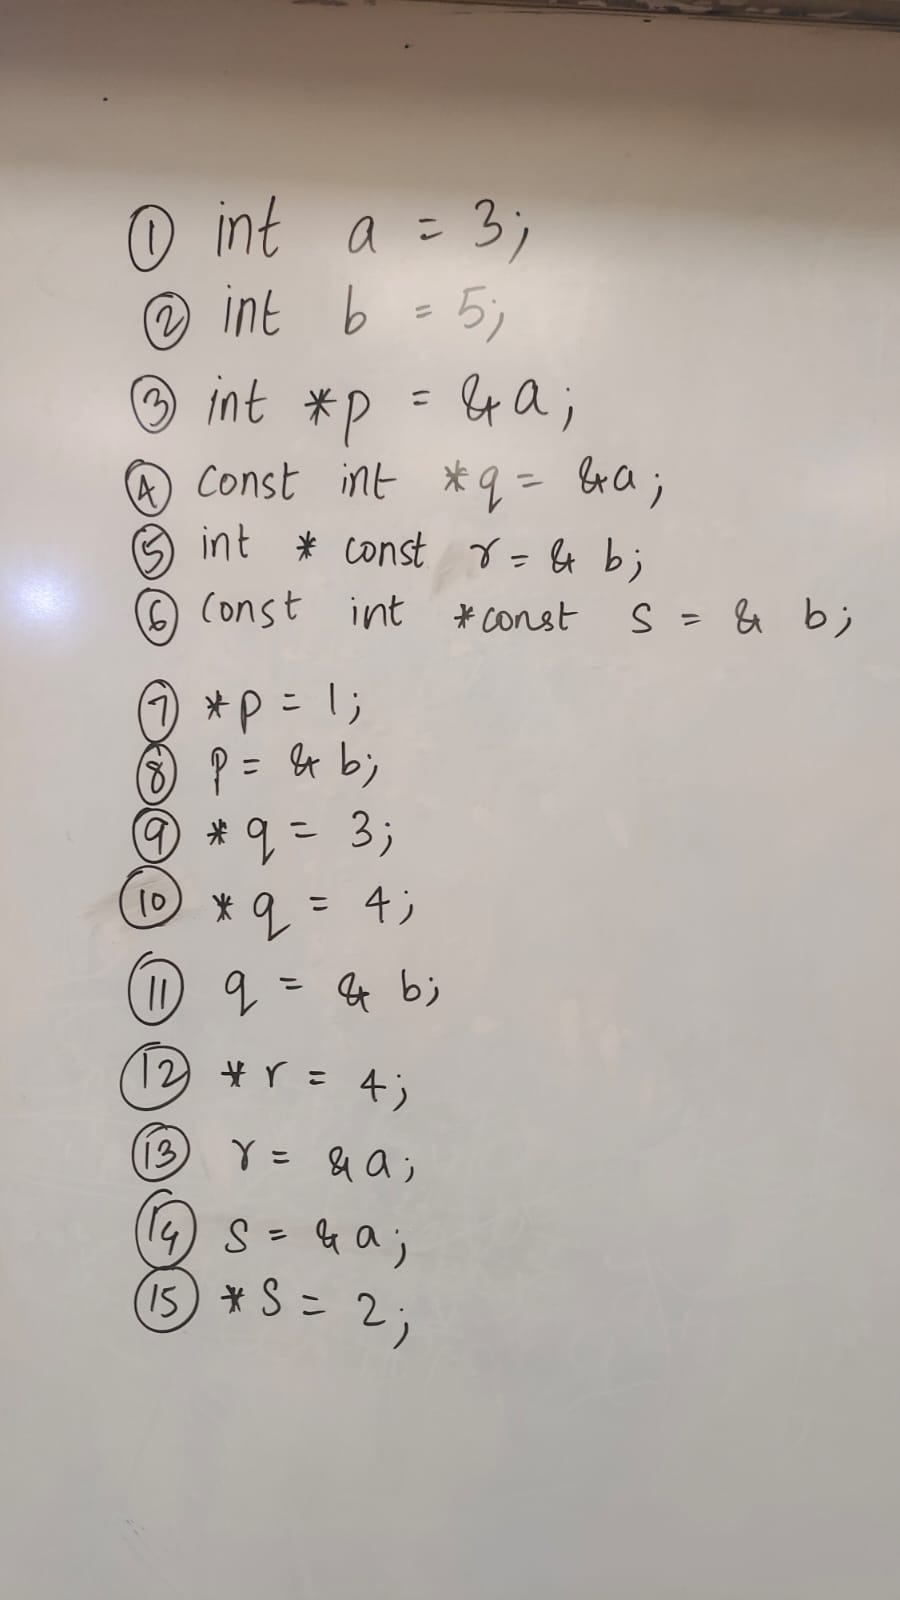 ① int a = 3;
② int b = 5;
③ int *p = &a;
④ const int *q = &a;
⑤ int * const r = & b;
⑥ const int *const s = & b;
⑦ *p = 1;
⑧ p = & b;
⑨ *q = 3;
⑩ *q = 4;
⑪ q = & b;
⑫ *r = 4;
⑬ r = &a;
⑭ s = &a;
⑮ *s = 2;